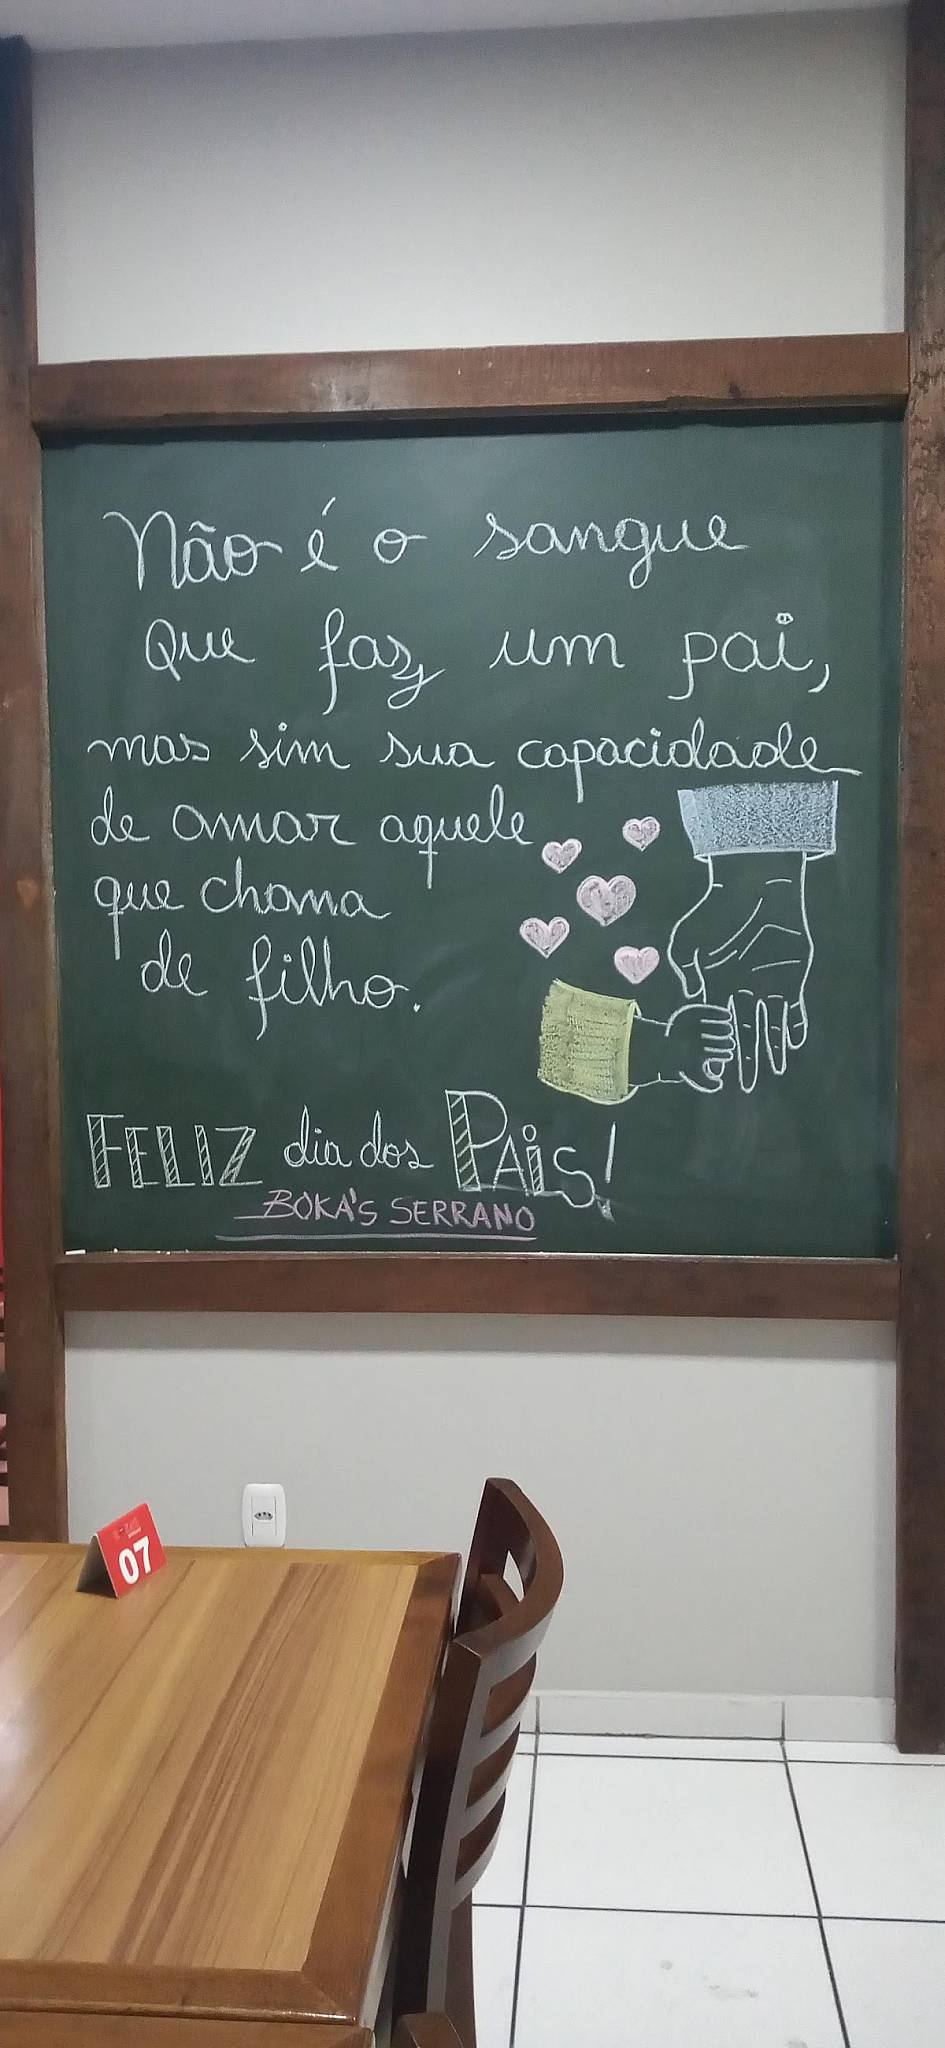 Não é o sangue
que faz um pai,
mas sim sua capacidade
de amar aquele
que chama
de filho.
FELIZ dia dos PAiS!
BOKA'S SERRANO
07